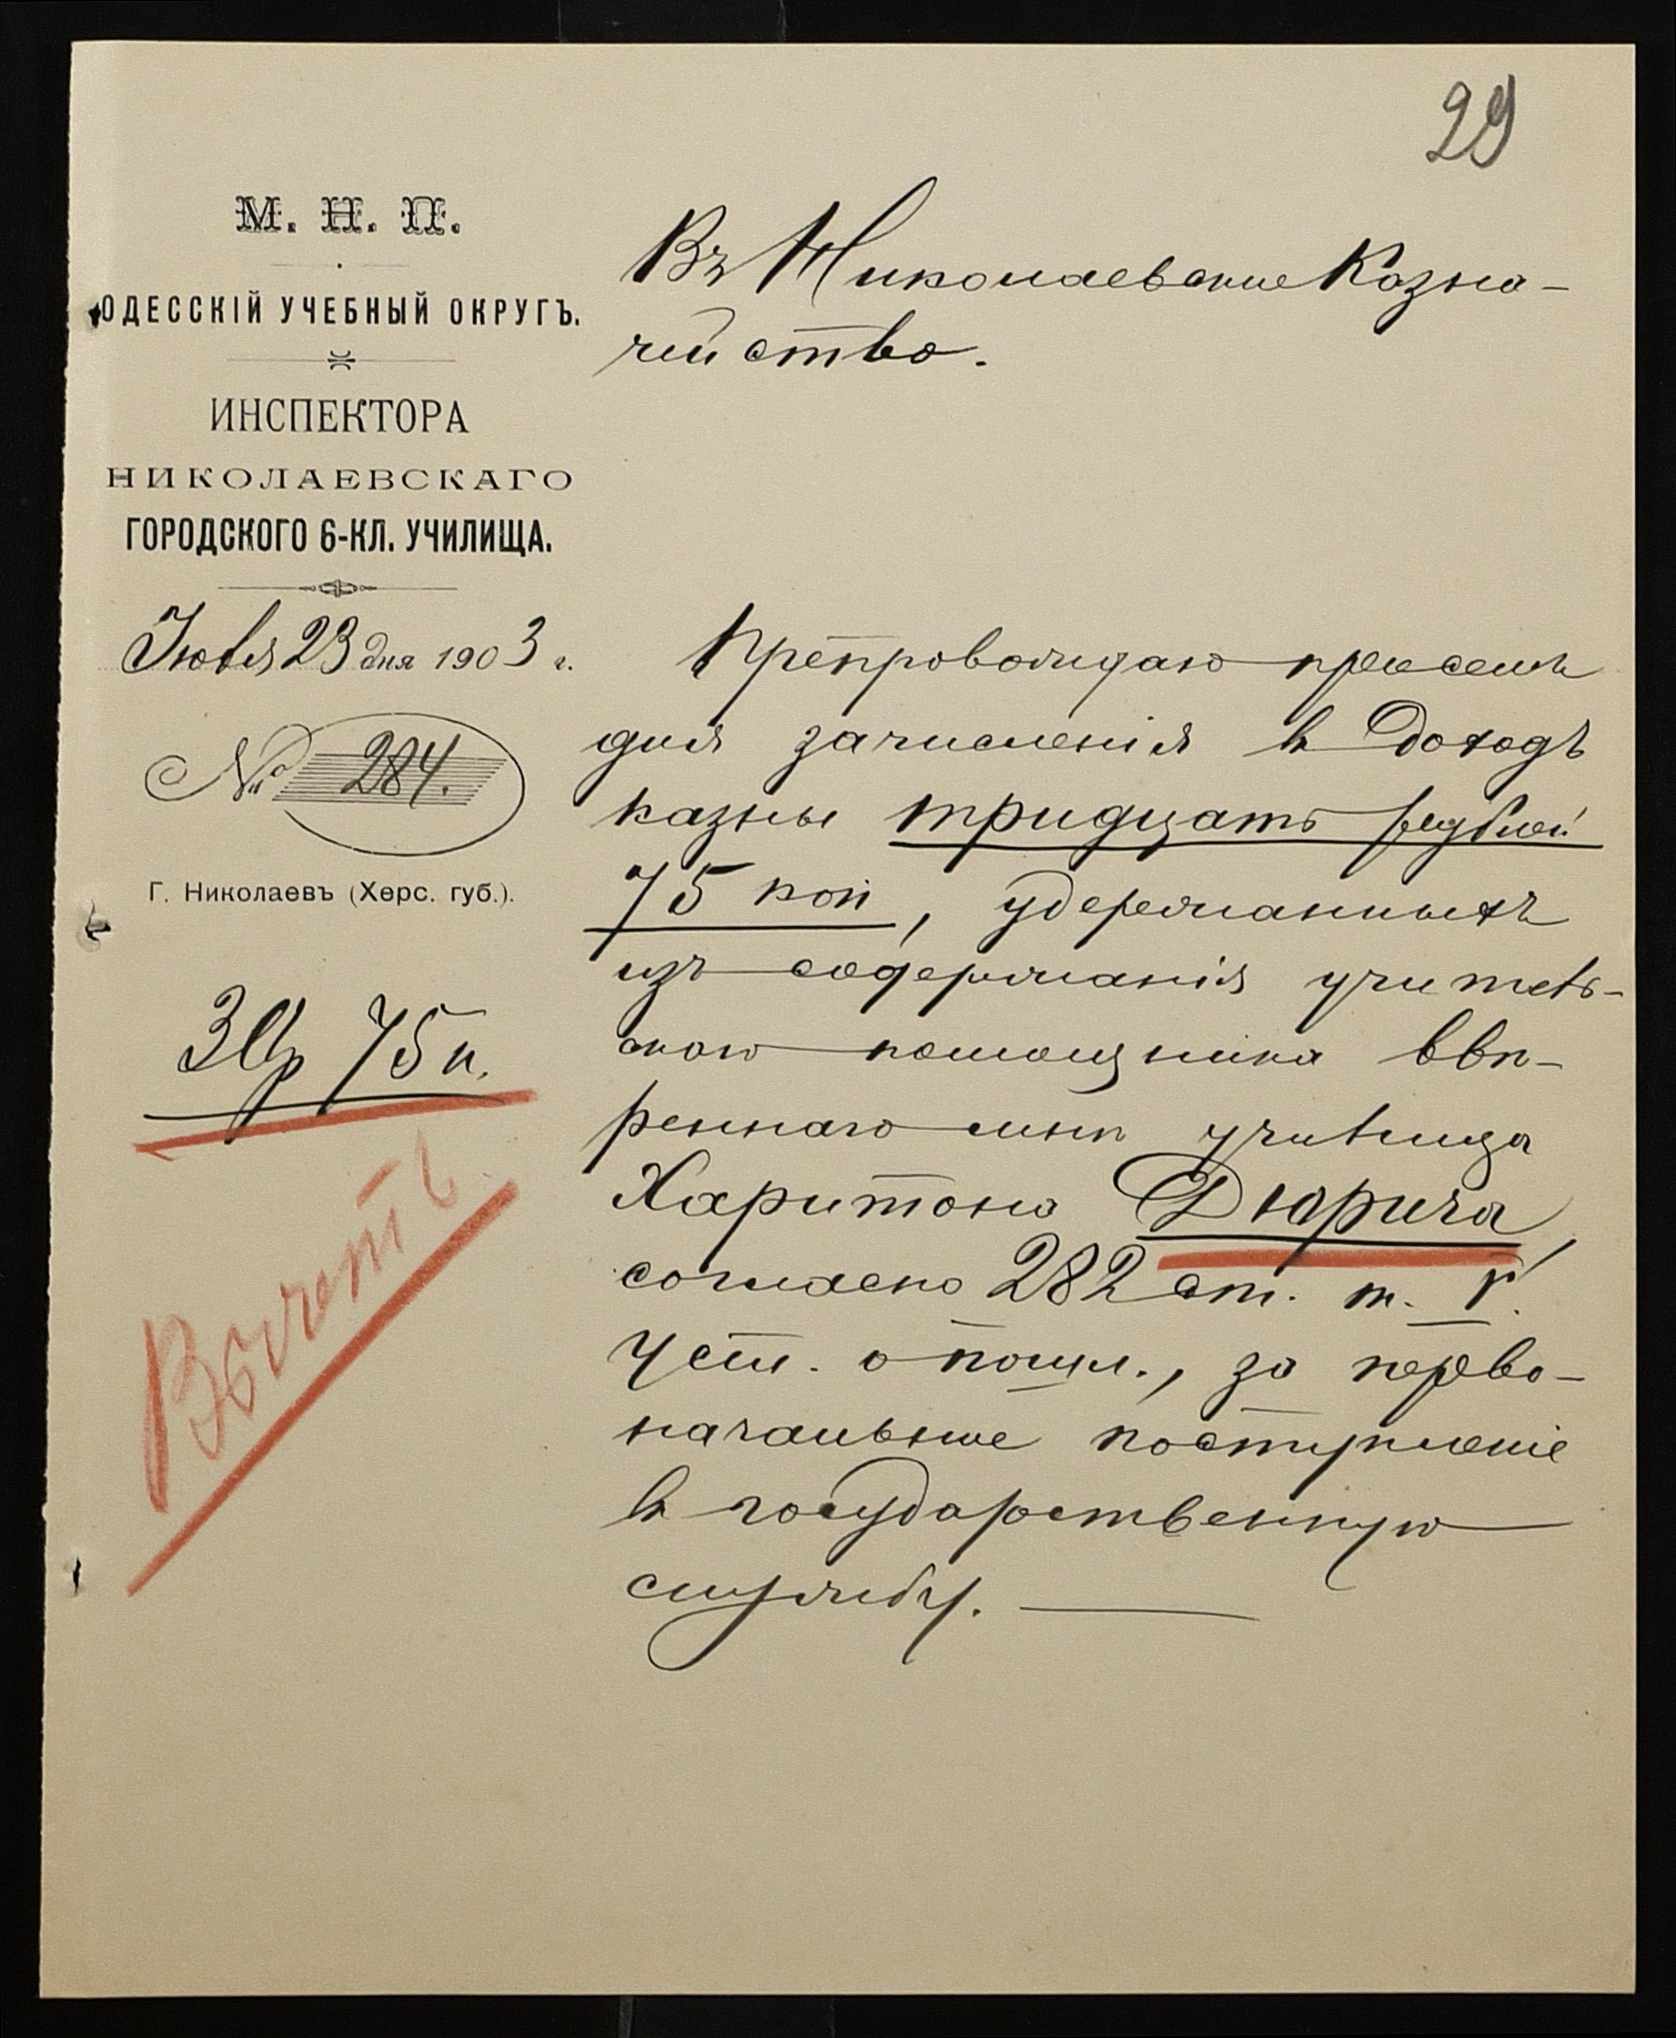 29
М. Н. П.
ОДЕССКІЙ УЧЕБНЫЙ ОКРУГЪ.
ИНСПЕКТОРА
НИКОЛАЕВСКАГО
ГОРОДСКОГО 6-КЛ. УЧИЛИЩА.
Іюля 23 дня 1903 г.
№ 284.
Г. Николаевъ (Херс. губ.).
30р 75 к.
Въ Николаевское Казна-
чейство.
Препровождаю при семъ
для зачисленія въ доходъ
казны тридцать рублей
75 коп, удержанныхъ
изъ содержанія учитель-
скаго помощника ввѣ-
реннаго мнѣ училища
Харитона Дюрича,
согласно 282 ст. т. V.
Уст. о пошл., за перво-
начальное поступленіе
въ государственную
службу.